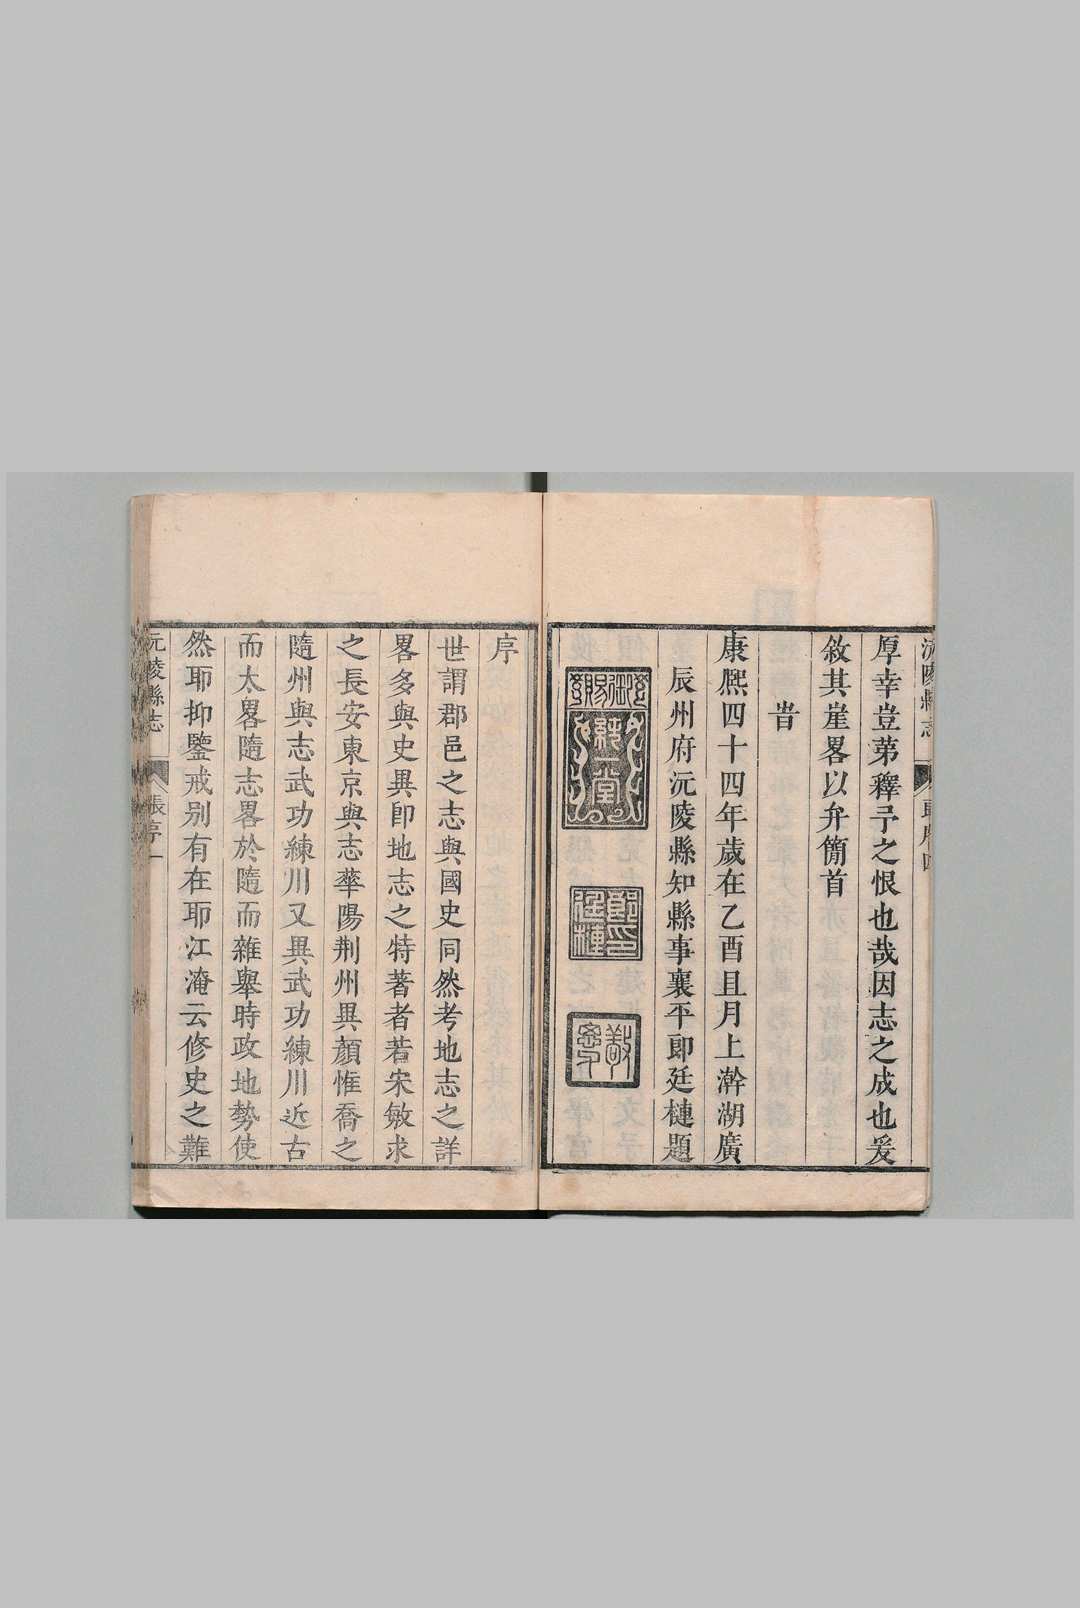 沅陵縣志
厚幸豈第釋予之恨也哉因志之成也爰
敘其崖畧以弁簡首
旹
康熙四十四年歲在乙酉且月上澣湖廣
辰州府沅陵縣知縣事襄平郎廷槤題
御賜
純一堂
郎印
廷槤
序
世謂郡邑之志與國史同然考地志之詳
畧多與史異卽地志之特著者若宋敏求
之長安東京與志華陽荆州異顏惟喬之
隨州與志武功練川又異武功練川近古
而太畧隨志畧於隨而雜舉時政地勢使
然耶抑鑒戒别有在耶江淹云修史之難
沅陵縣志
張序
一